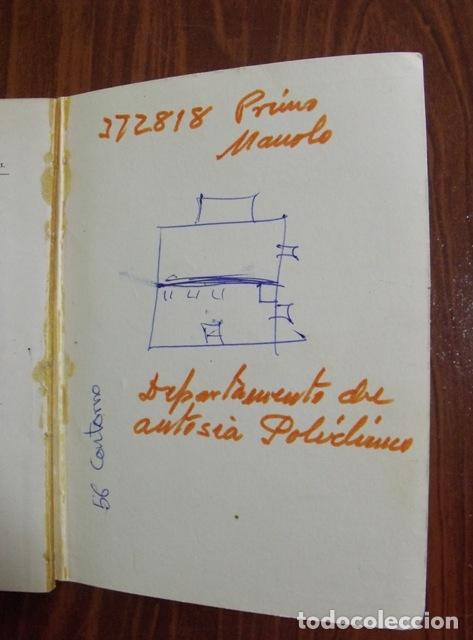 372818 Primo
Manolo
Departamento de
autosia Policlinico
56 Contorno
todocoleccion